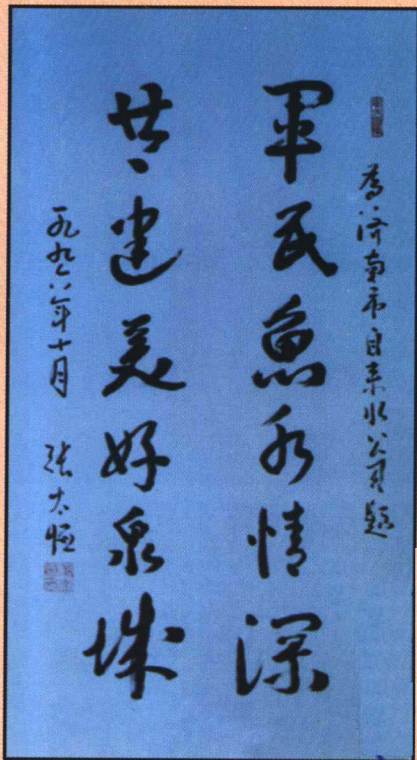 為济南市自来水公司题
军民鱼水情深
共建美好泉城
一九九八年十月 张太恒